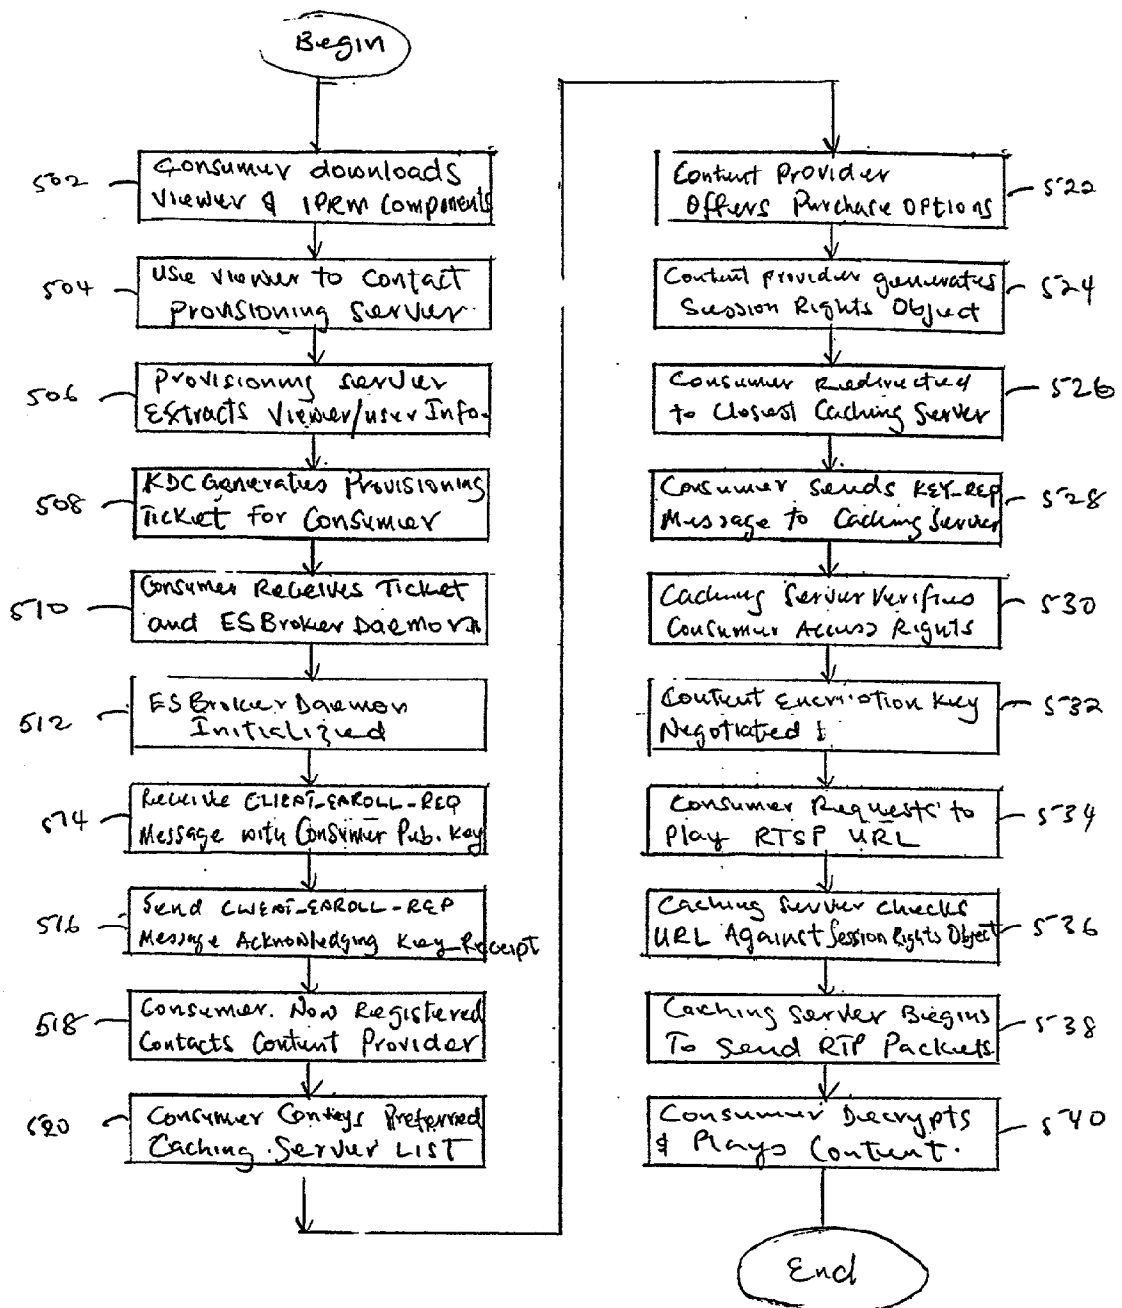 Begin
502
Consumer downloads
Viewer & IPRM Components
504
Use viewer to Contact
Provisioning Server
506
Provisioning server
Extracts Viewer/user Info.
508
KDC Generates Provisioning
Ticket for Consumer
510
Consumer Receives Ticket
and ESBroker Daemon
512
ESBroker Daemon
Initialized
514
Receive CLIENT_ENROLL_REQ
Message with Consumer Pub. Key
516
Send CLIENT_ENROLL_REP
Message Acknowledging Key Receipt
518
Consumer Now Registered
Contacts Content Provider
520
Consumer Conveys Preferred
Caching Server LIST
522
Content Provider
Offers Purchase Options
524
Content provider generates
Session Rights Object
526
Consumer Redirected
to Closest Caching Server
528
Consumer Sends KEY_REQ
Message to Caching Server
530
Caching Server Verifies
Consumer Access Rights
532
Content Encryption Key
Negotiated
534
Consumer Requests to
Play RTSP URL
536
Caching Server checks
URL Against Session Rights Object
538
Caching Server Begins
To Send RTP Packets
540
Consumer Decrypts
& Plays Content.
End